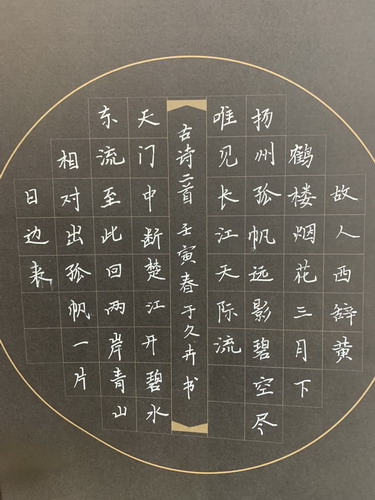 故人西辞黄
鹤楼烟花三月下
扬州孤帆远影碧空尽
唯见长江天际流
古诗二首 壬寅春于久卉书
天门中断楚江开碧水
东流至此回两岸青山
相对出孤帆一片
日边来